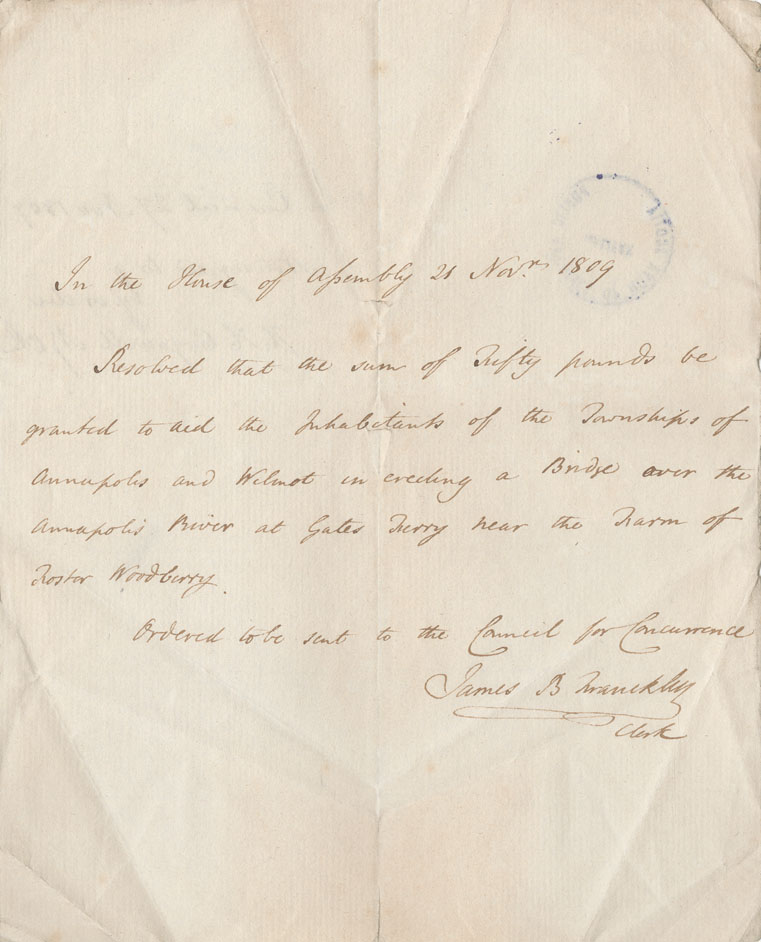 In the House of Assembly 21 Novr. 1809
Resolved that the sum of Fifty pounds be
granted to aid the Inhabitants of the Townships of
Annapolis and Wilmot in erecting a Bridge over the
Annapolis River at Gates Ferry near the Farm of
Foster Woodberry.
Ordered to be sent to the Council for Concurrence
James B Franckly
Clerk